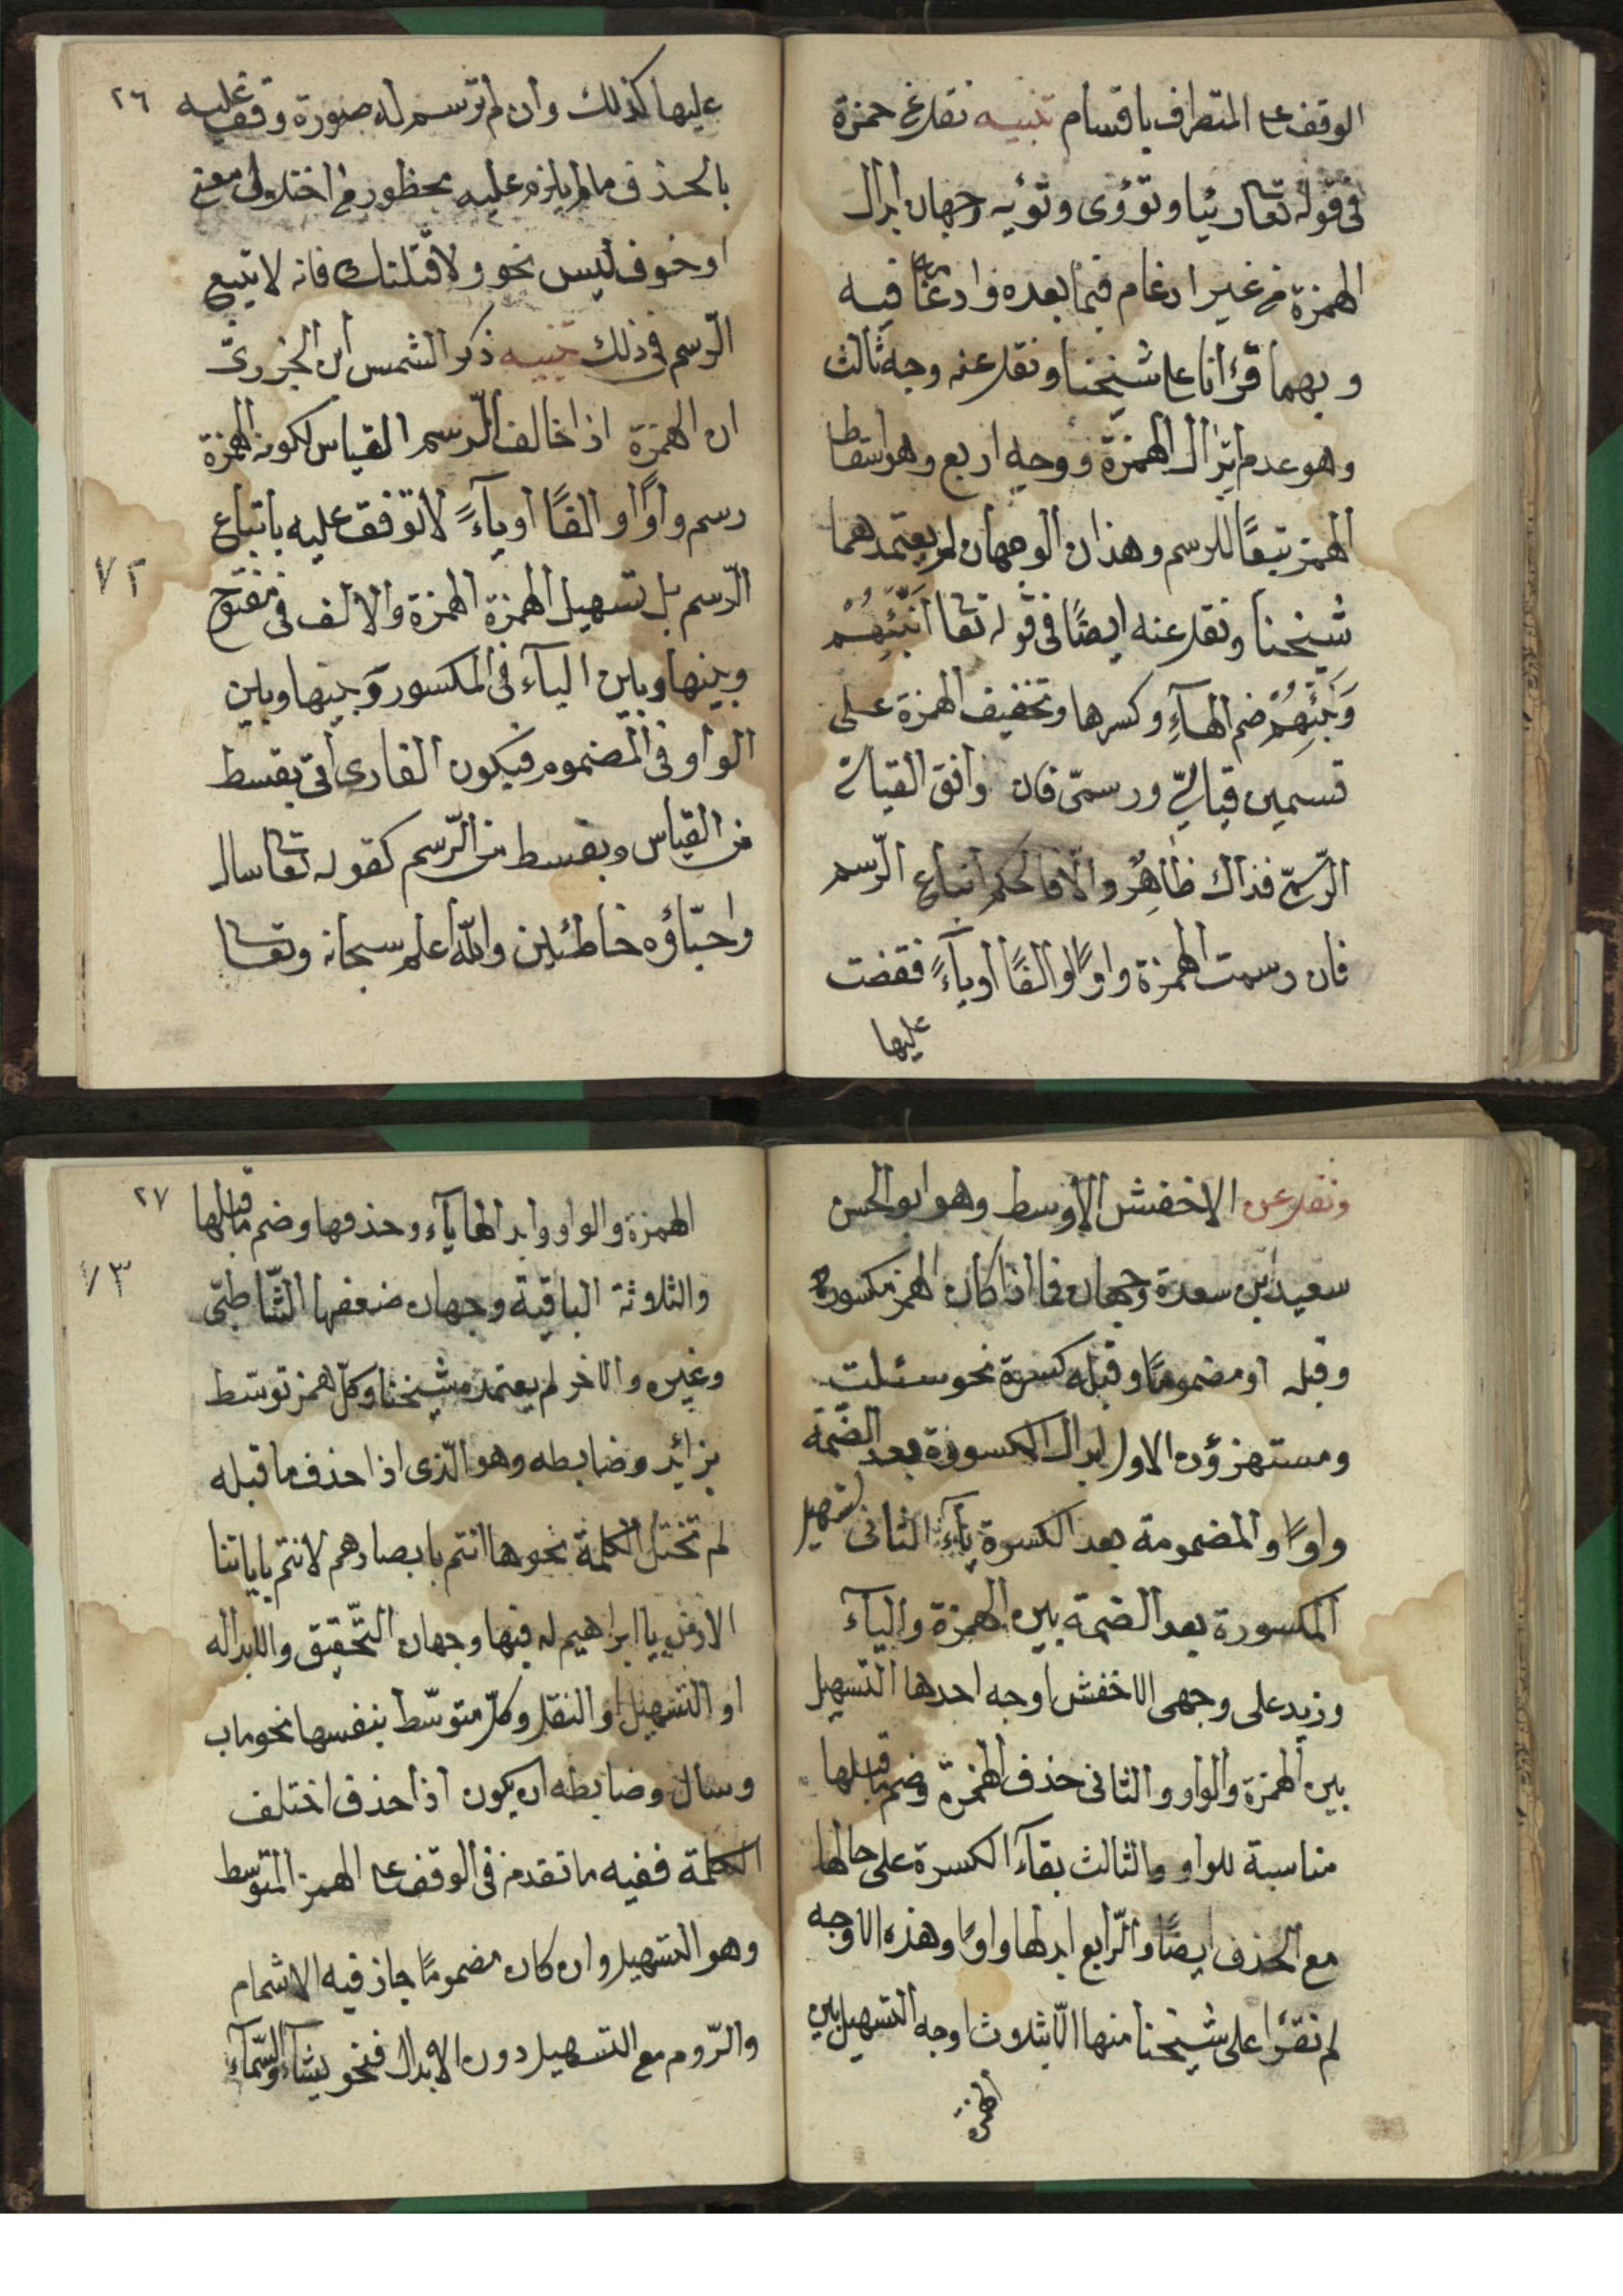 الوقف على المتطرف باقسام تنبيه نقل عن حمزة
فى قوله تعالى رئيا وتؤوى وتؤيه وجهان ابدال
الهمزة من غير ادغام فيما بعده وادغامها فيه
وبهما قرأنا على شيخنا ونقل عنه وجه ثالث
وهو عدم ابدال الهمزة ووجه اربع وهو اسقاط
الهمز تبعًا للرسم وهذان الوجهان لم يعتمدهما
شيخنا ونقل عنه ايضًا فى قوله تعالى أنبئهم
ونبئهم ضم الهآء وكسرها وتخفيف الهمزة على
قسمين قياسيّ ورسمىّ فان وافق القياسى
الرّسمىّ فذاك ظاهرٌ والّا فالحكم اتباع الرّسم
فان رسمت الهمزة واوًا او الفًا او يآءً فقفت
عليها
٢٦
عليها كذلك وان لم ترسم له صورة وقف عليه
بالحذف ما لم يلزم عليه محظور من اختلال معنى
او خوف ليس نحو ولاقتلنك فانه لا تتبع
الرّسم فى ذلك تنبيه ذكر الشمس ابن الجزرىّ
ان الهمزة اذا خالف الرّسم القياس لكونه الهمزة
رسم واوًا او الفًا او يآءً لا توقف عليه باتباع
٧٢
الرّسم بل تسهيل الهمزة الهمزة والالف فى مفتوح
وبينها وبين اليآء فى المكسور وبينها وبين
الواو فى المضموم فيكون القارى اتى بقسط
من القياس وبقسط من الرّسم كقوله تعالى سال
واحبّاؤه خاطئين والله اعلم سبحانه وتعالى
ونقل عن الاخفش الاوسط وهو ابو الحسن
سعيد ابن سعدة وجهان فما اذا كان الهمز مكسورة
وقبله او مضمومًا وقبله كسرة نحو سئلت
ومستهزؤن الاول ابدال المكسورة بعد الضّمّة
واوًا والمضمومة بعد الكسرة يآء الثانى تسهيل
المكسورة بعد الضمة بين الهمزة واليآء
وزيد على وجهى الاخفش اوجه احدها التسهيل
بين الهمزة والواو والثانى حذف الهمزة وضم ما قبلها
مناسبة للواو والثالث بقآء الكسرة على حالها
مع الحذف ايضًا والرّابع ابدلها واوًا وهذه الاوجه
لم نقرأ على شيخنا منها الّا بثلاث اوجه التسهيل بين
الهمزة
٢٧
الهمزة والواو وابدالها يآء وحذفها وضم ما قبلها
٧٣
والثلاثة الباقية وجهان ضعفها الشّاطبّى
وغيره والاخر لم يعتمده شيخنا وكلّ همز توسّط
بزائد وضابطه وهو الّذى اذا حذف ما قبله
لم تختل الكلمة نحو هاانتم بابصارهم لانتم باياتنا
الارض يا ابراهيم له فيها وجهان التّحقيق والابداله
او التسهيل او النقل وكلّ متوسّط بنفسها نحو ماب
وسال وضابطه ان يكون اذا حذف اختلف
الكلمة ففيه ما تقدم فى الوقف على الهمز المتوسط
وهو التسهيل وان كان مضمومًا جاز فيه الاشمام
والرّوم مع التسهيل دون الابدال فنحو يشآء والسّمآء